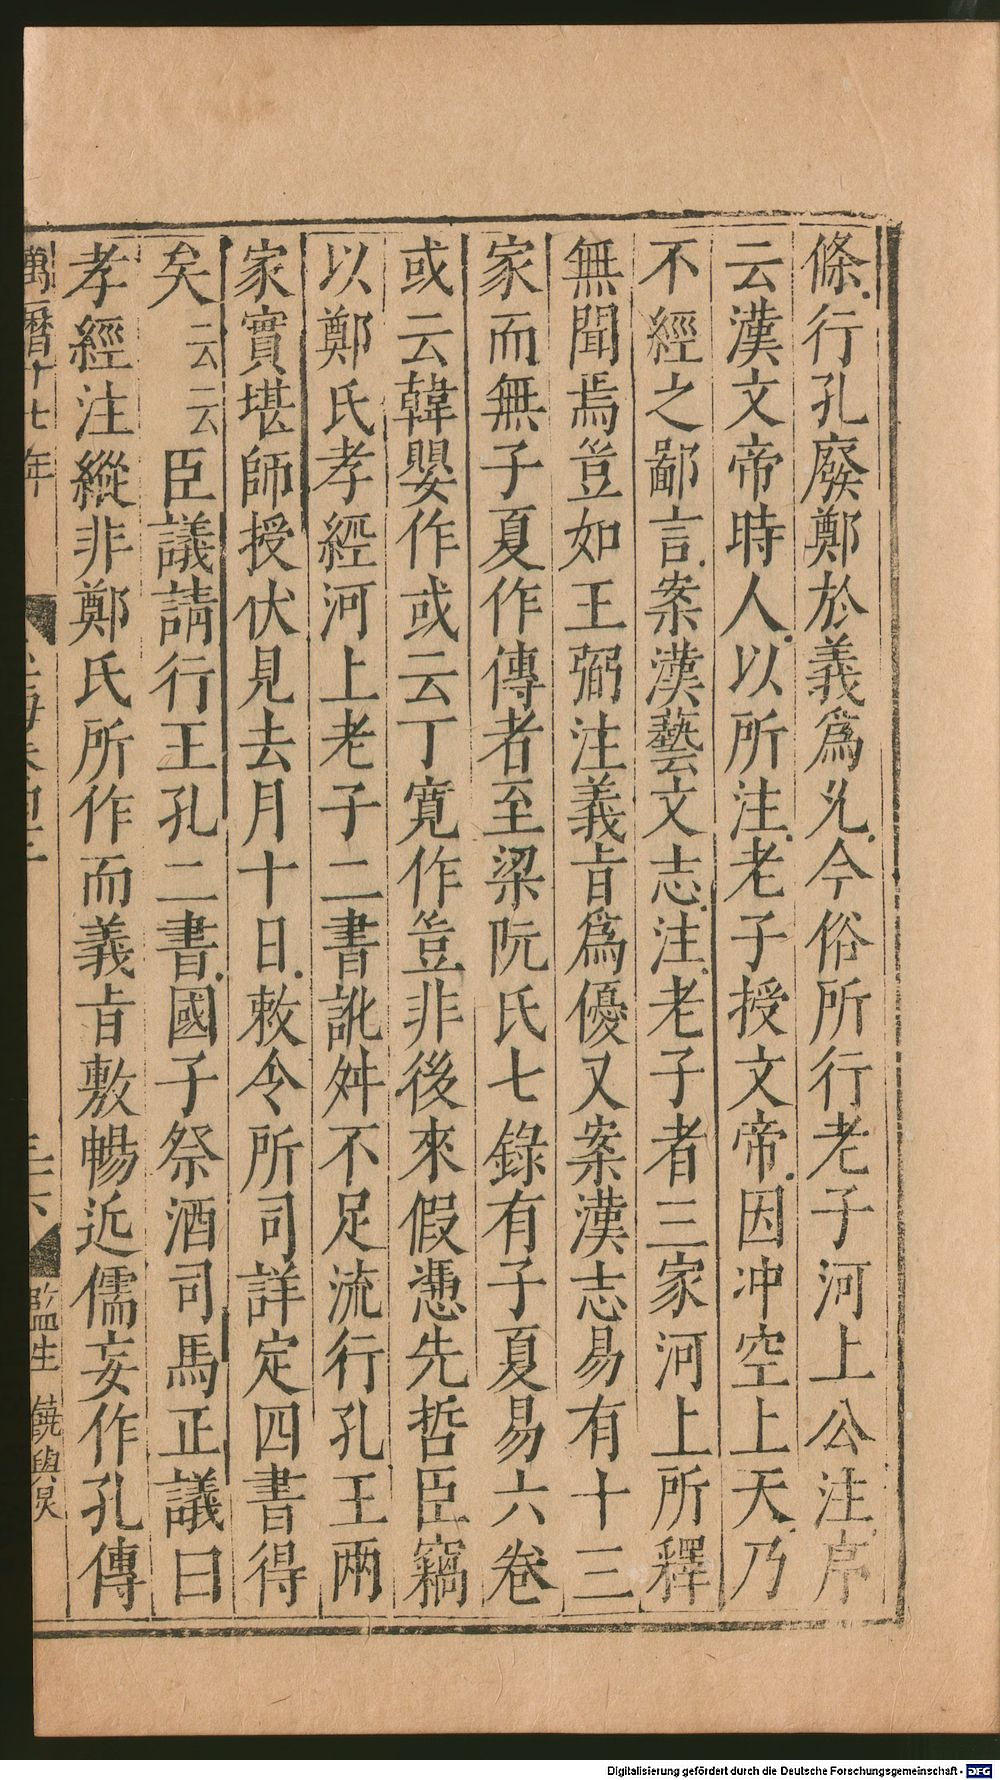 條行孔廢鄭於義爲允今俗所行老子河上公注序
云漢文帝時人以所注老子授文帝因冲空上天乃
不經之鄙言案漢藝文志注老子者三家河上所釋
無聞焉豈如王弼注義㫖爲優又案漢志易有十三
家而無子夏作傳者至梁阮氏七錄有子夏易六卷
或云韓嬰作或云丁寛作豈非後來假憑先哲臣竊
以鄭氏孝經河上老子二書訛舛不足流行孔王兩
家實堪師授伏見去月十日敕令所司詳定四書得
矣云云臣議請行王孔二書國子祭酒司馬正議曰
孝經注縱非鄭氏所作而義㫖敷暢近儒妄作孔傳
萬曆十七年
監生
Digitalisierung gefördert durch die Deutsche Forschungsgemeinschaft - DFG